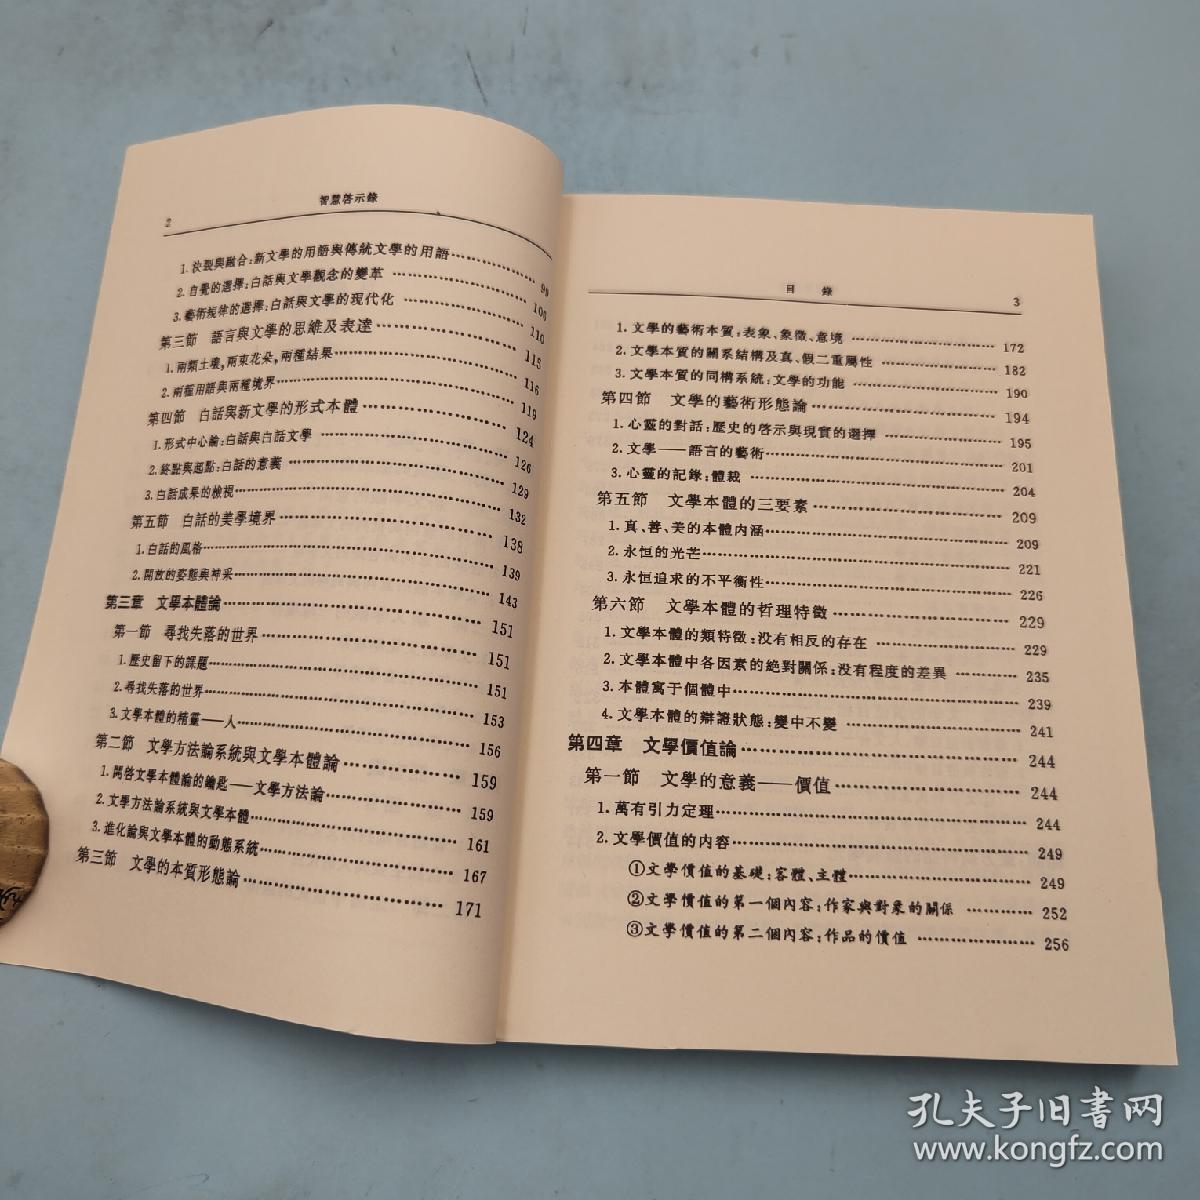 2
智慧啓示錄
1.決裂與融合：新文學的用語與傳統文學的用語 99
2.自覺的選擇：白話與文學觀念的變革 106
3.藝術規律的選擇：白話與文學的現代化 110
第三節 語言與文學的思維及表達 115
1.兩類土壤，兩束花朵，兩種結果 116
2.兩種用語與兩種境界 119
第四節 白話與新文學的形式本體 124
1.形式中心論：白話與白話文學 126
2.終點與起點：白話的意義 129
3.白話成果的檢視 132
第五節 白話的美學境界 138
1.白話的風格 139
2.開放的姿態與神采 143
第三章 文學本體論 151
第一節 尋找失落的世界 151
1.歷史留下的課題 151
2.尋找失落的世界 153
3.文學本體的精靈——人 156
第二節 文學方法論系統與文學本體論 159
1.開啓文學本體論的鑰匙——文學方法論 159
2.文學方法論系統與文學本體 161
3.進化論與文學本體的動態系統 167
第三節 文學的本質形態論 171
目 錄
3
1.文學的藝術本質：表象、象徵、意境 172
2.文學本質的關系結構及真、假二重屬性 182
3.文學本質的同構系統：文學的功能 190
第四節 文學的藝術形態論 194
1.心靈的對話：歷史的啓示與現實的選擇 195
2.文學——語言的藝術 201
3.心靈的記錄：體裁 204
第五節 文學本體的三要素 209
1.真、善、美的本體内涵 209
2.永恒的光芒 221
3.永恒追求的不平衡性 226
第六節 文學本體的哲理特徵 229
1.文學本體的類特徵：没有相反的存在 229
2.文學本體中各因素的絶對關係：没有程度的差異 235
3.本體寓于個體中 239
4.文學本體的辯證狀態：變中不變 241
第四章 文學價值論 244
第一節 文學的意義——價值 244
1.萬有引力定理 244
2.文學價值的内容 249
①文學價值的基礎：客體、主體 249
②文學價值的第一個内容：作家與對象的關係 252
③文學價值的第二個内容：作品的價值 256
孔夫子旧书网
www.kongfz.com